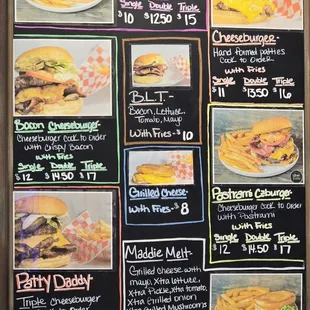 Single Double Triple
$10 12.50 $15
Bacon Cheeseburger-
Cheeseburger cook to order
with crispy Bacon
with Fries
Single Double Triple
$12 $14.50 $17
Patty Daddy-
Triple Cheeseburger
B.L.T.-
Bacon, Lettuce,
Tomato, Mayo
With Fries- $10
Grilled Cheese-
With Fries- $8
Maddie Melt-
Grilled cheese with
mayo, Xtra lettuce,
Xtra Pickle, Xtra tomato,
Xtra Grilled onion
Xtra Grilled Mushrooms
Cheeseburger-
Hand formed patties
Cook to Order
with Fries
Single Double Triple
$11 $13.50 $16
Pastrami Czburger-
Cheeseburger cook to order
with Pastrami
With Fries
Single Double Triple
$12 $14.50 $17